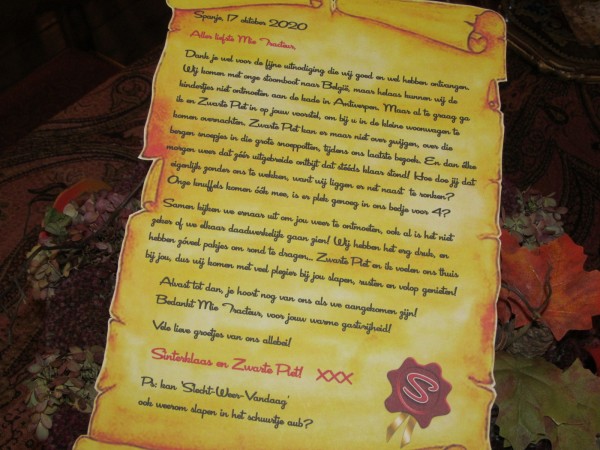 Spanje, 17 oktober 2020
Aller liefste Mie Tracteur,
Dank je wel voor de fijne uitnodiging die wij goed en wel hebben ontvangen.
Wij komen met onze stoomboot naar België, maar helaas kunnen wij de
kindertjes niet ontmoeten aan de kade in Antwerpen. Maar al te graag ga
ik en Zwarte Piet in op jouw voorstel, om bij u in de kleine woonwagen te
komen overnachten. Zwarte Piet kan er maar niet over zwijgen, over die
bergen snoepjes in die grote snoeppotten, tijdens ons laatste bezoek. En dan elke
morgen weer dat zéér uitgebreide ontbijt dat stééds klaar stond! Hoe doe jij dat
eigenlijk zonder ons te wekken, want wij liggen er net naast te ronken?
Onze knuffels komen óók mee, is er plek genoeg in ons bedje voor 4?
Samen kijken we ernaar uit om jou weer te ontmoeten, ook al is het niet
zeker of we elkaar daadwerkelijk gaan zien! Wij hebben het erg druk, en
hebben zóveel pakjes om rond te dragen... Zwarte Piet en ik voelen ons thuis
bij jou, dus wij komen met veel plezier bij jou slapen, rusten en volop genieten!
Alvast tot dan, je hoort nog van ons als we aangekomen zijn!
Bedankt Mie Tracteur, voor jouw warme gastvrijheid!
Vele lieve groetjes van ons allebei!
Sinterklaas en Zwarte Piet! XXX
Ps: kan 'Slecht-Weer-Vandaag'
ook weerom slapen in het schuurtje aub?
S